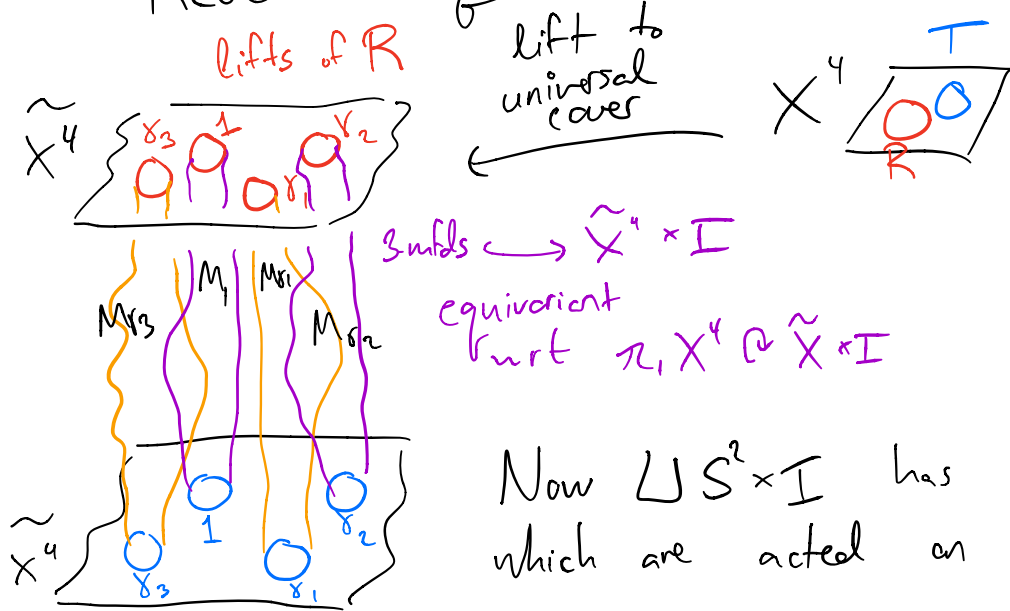 lifts of R
lift to
universal
cover
T
X⁴
R
X̃⁴
γ₃
1
γ₂
γ₁
3-mfds ↪ X̃⁴ × I
equivariant
wrt π₁X⁴ ↷ X̃ × I
M_γ₃
M₁
M_γ₁
M_γ₂
Now ⨆ S² × I has
which are acted on
X̃⁴
γ₃
1
γ₁
γ₂